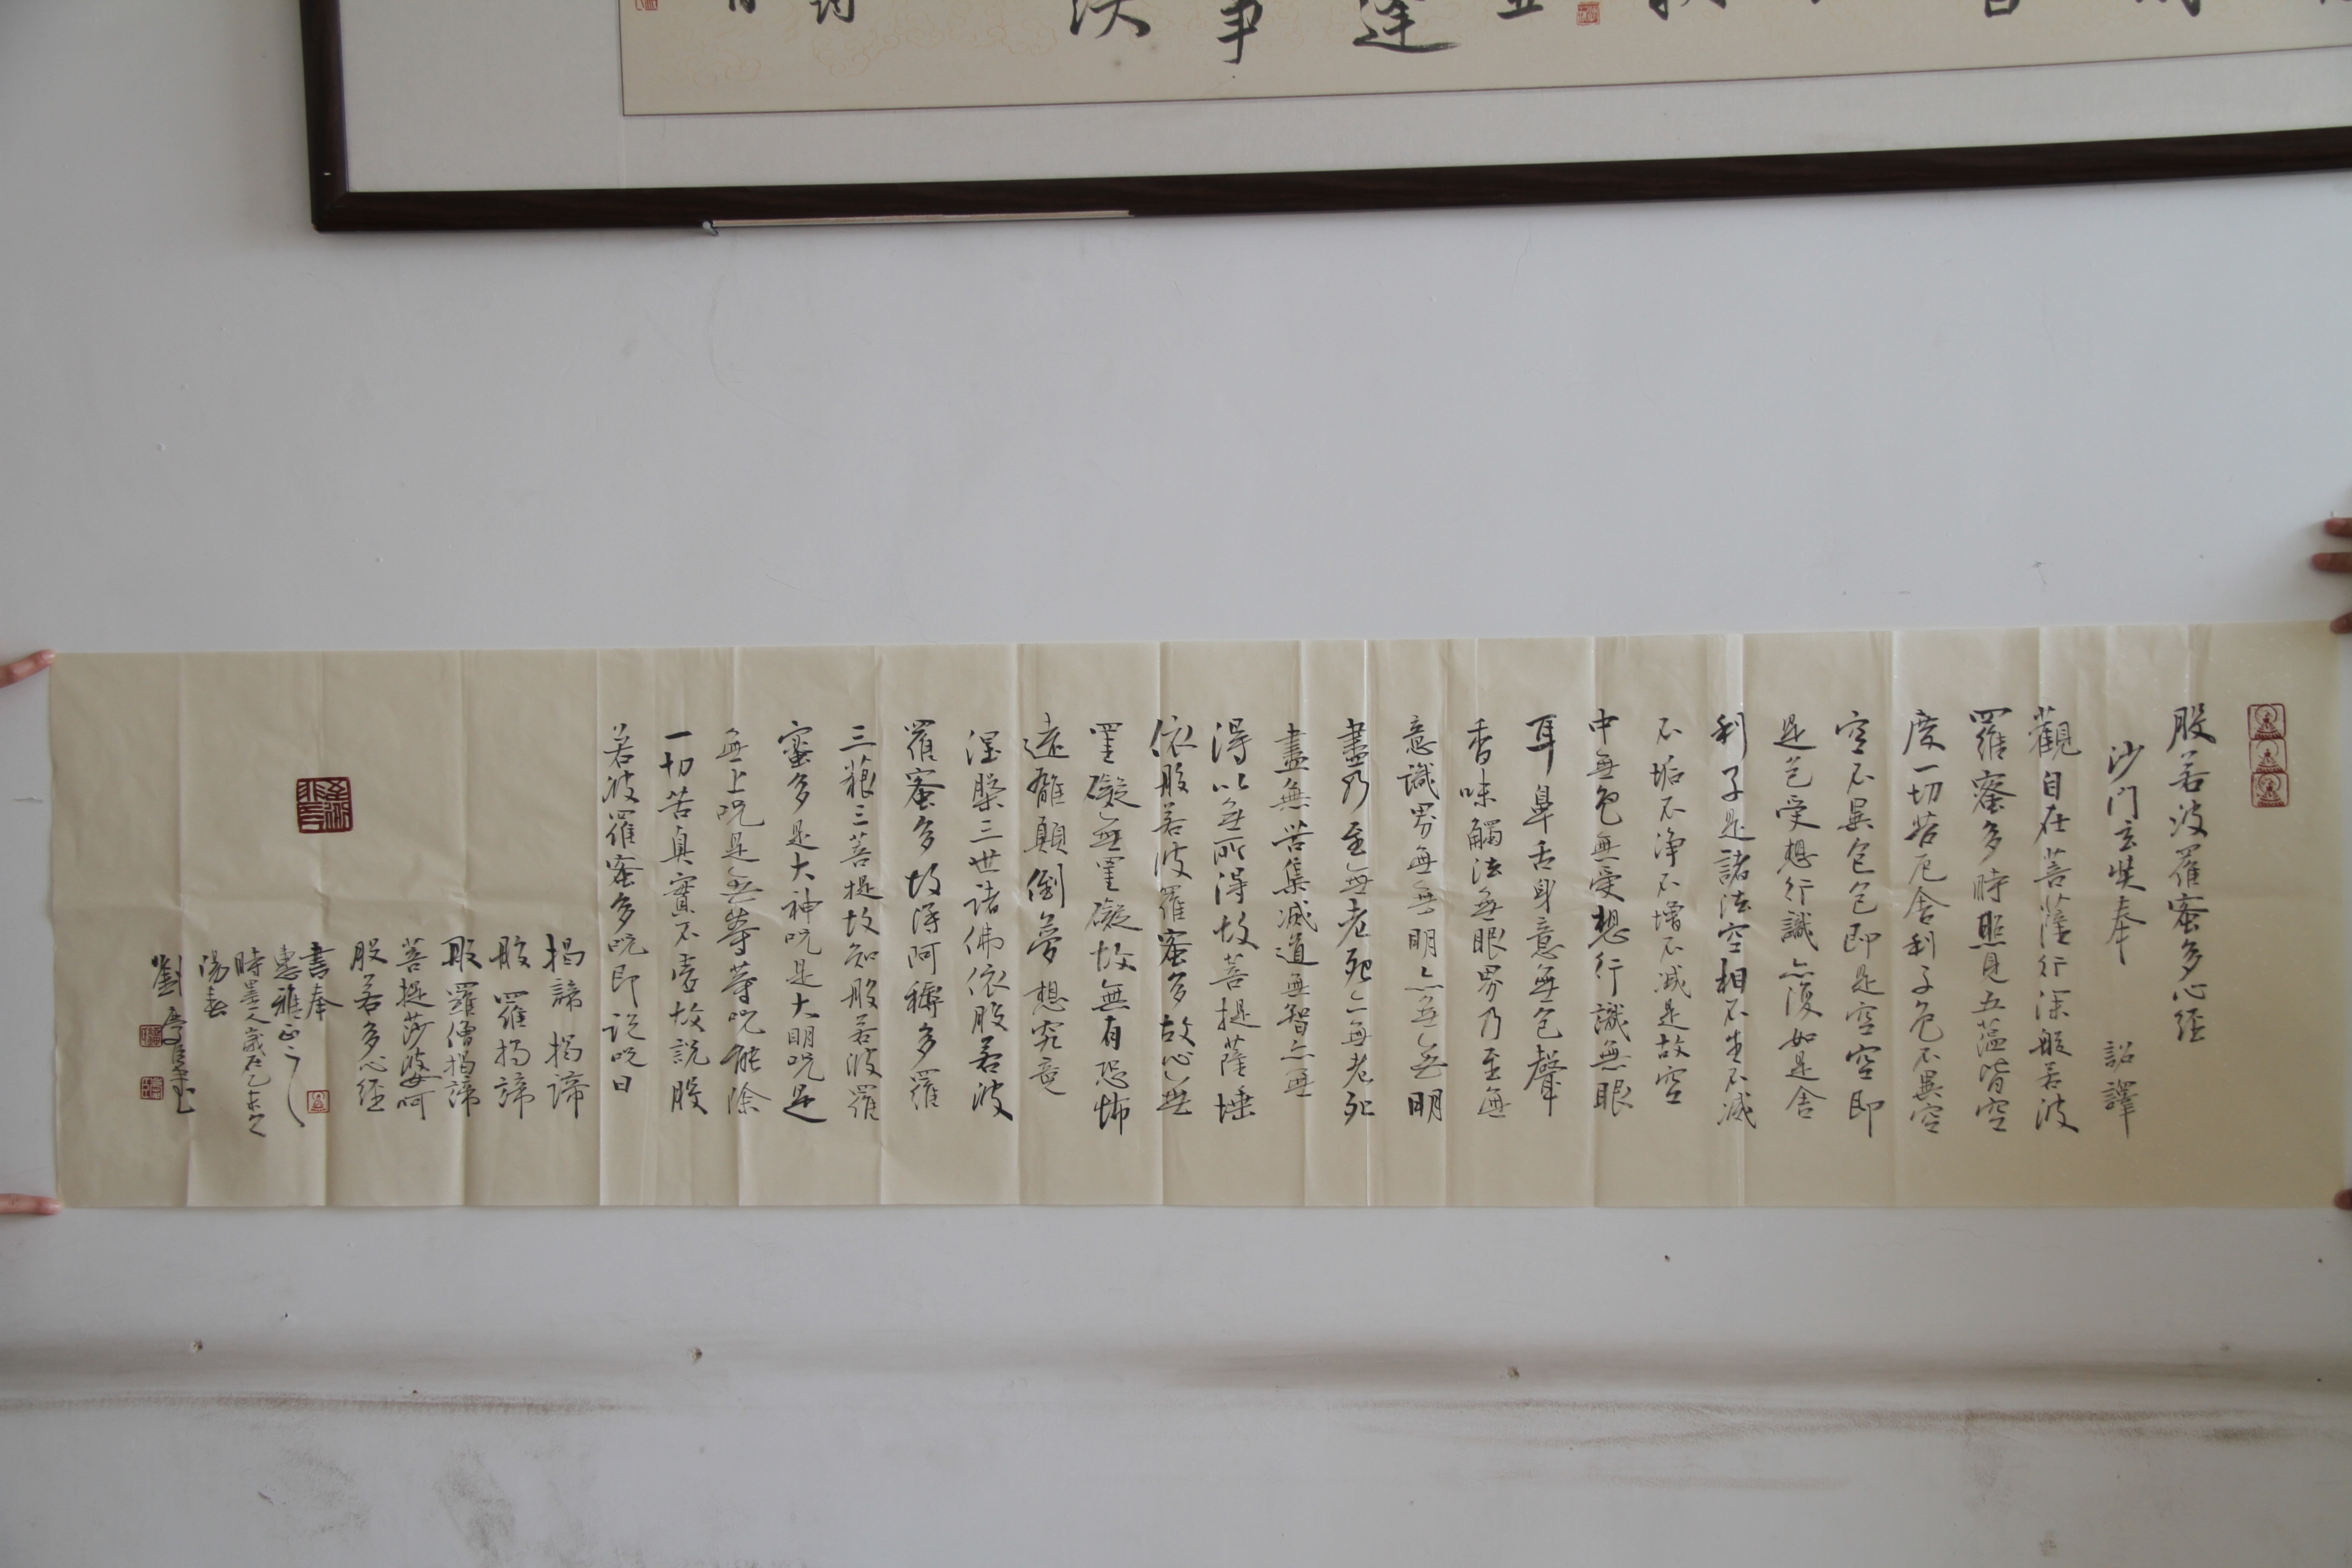 般若波羅蜜多心経
沙門玄奘奉 詔譯
觀自在菩薩行深般若波
羅蜜多時照見五蕴皆空
度一切苦厄舍利子色不異空
空不異色色即是空空即
是色受想行識亦復如是舍
利子是諸法空相不生不滅
不垢不净不增不减是故空
中無色無受想行識無眼
耳鼻舌身意無色聲
香味觸法無眼界乃至無
意識界無無明亦無無明
盡乃至無老死亦無老死
盡無苦集滅道無智亦無
得以無所得故菩提薩埵
依般若波羅蜜多故心無
罣礙無罣礙故無有恐怖
遠離顛倒夢想究竟
涅槃三世諸佛依般若波
羅蜜多故得阿耨多羅
三藐三菩提故知般若波羅
蜜多是大神呪是大明呪是
無上呪是無等等呪能除
一切苦真實不虛故說般
若波羅蜜多呪即说呪曰
揭諦 揭諦
般羅揭諦
般羅僧揭諦
菩提莎婆呵
般若多心経
書奉
惠雅正之
時
歲在乙未之
湯春
劉
事
逢